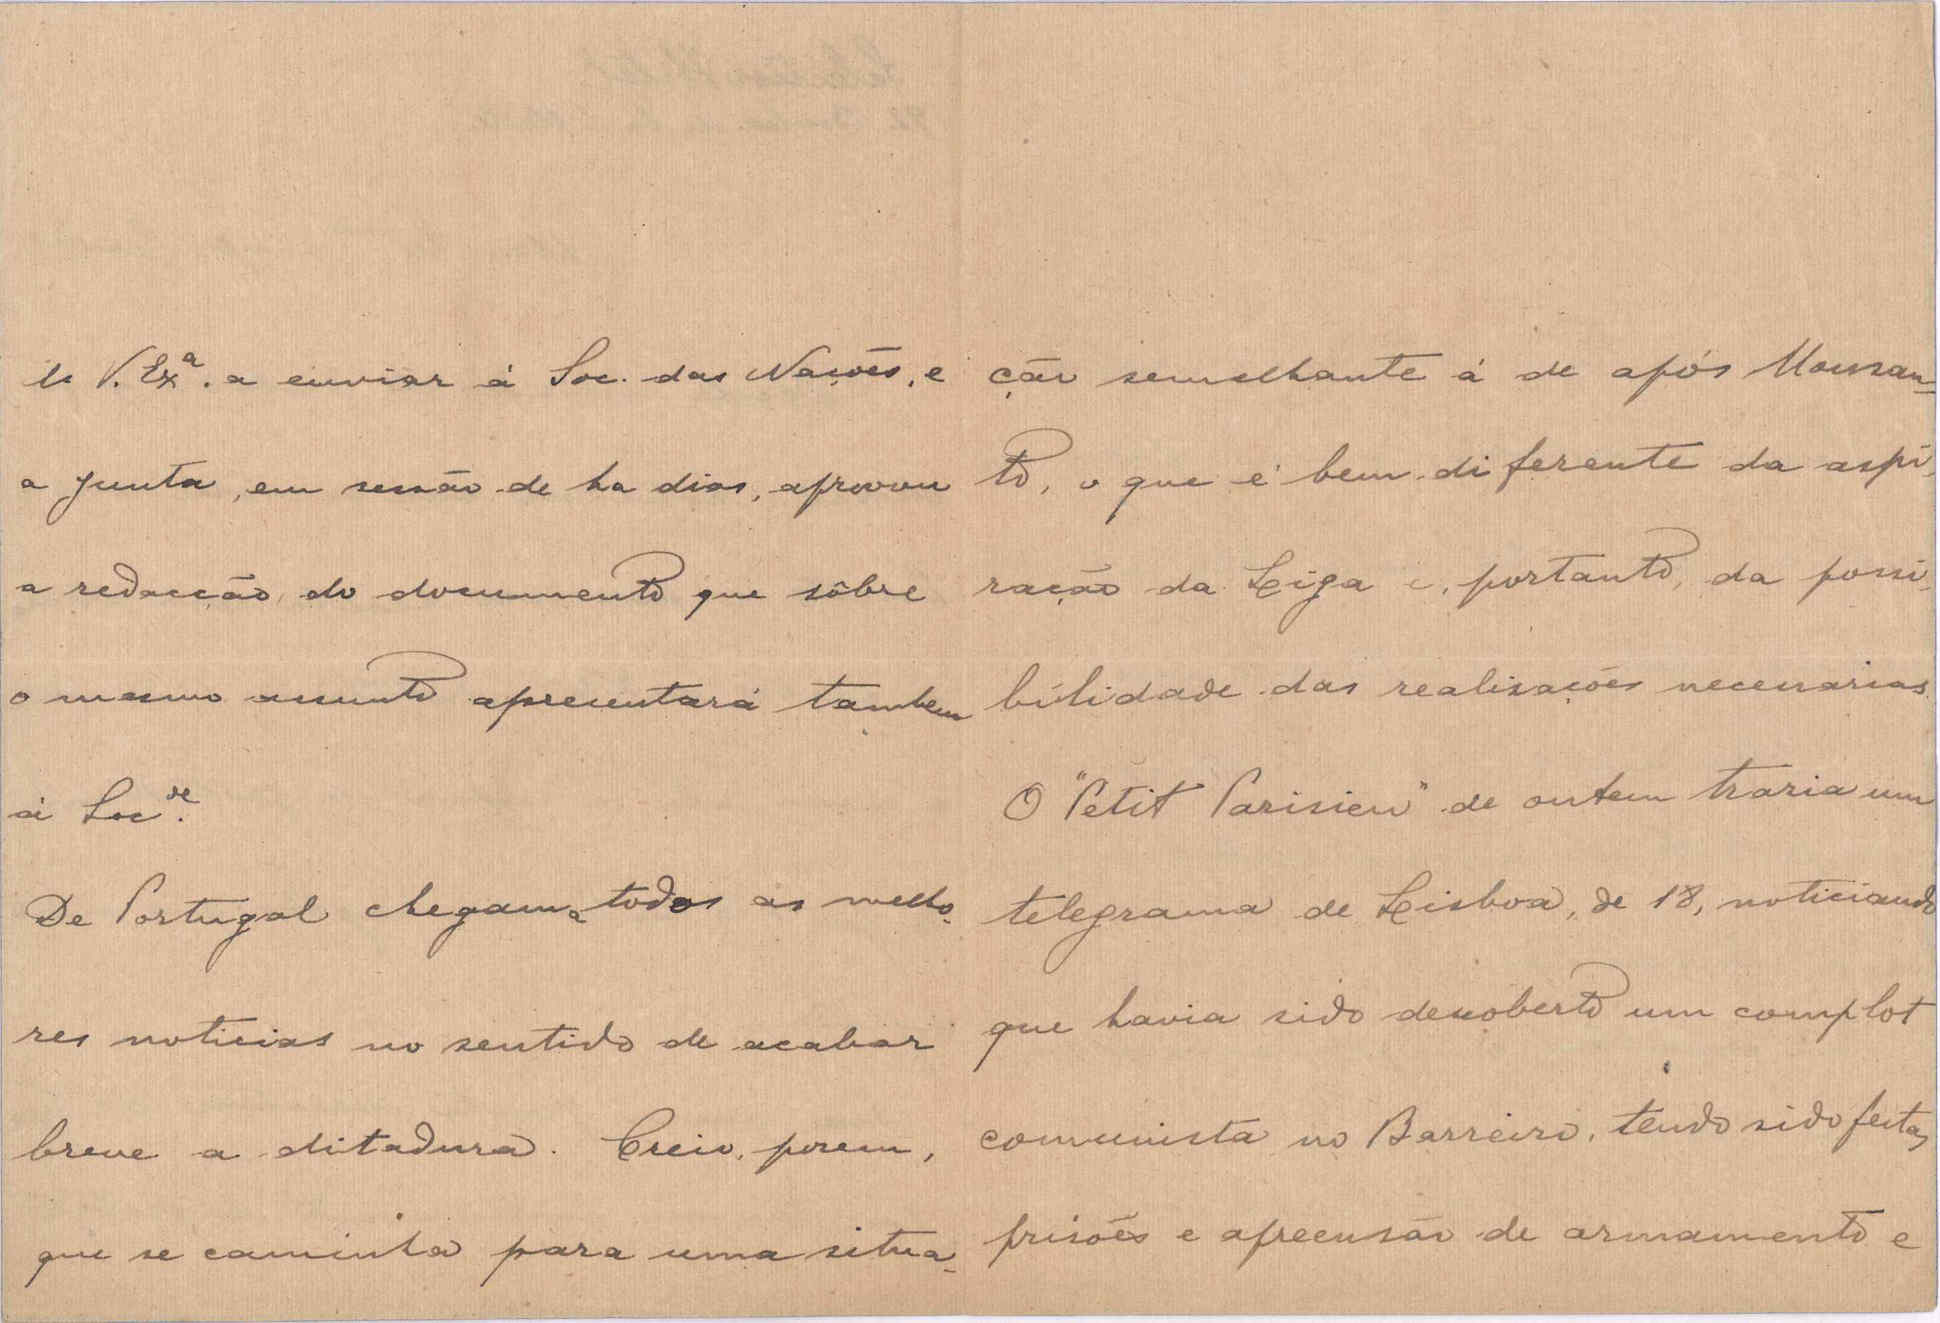 de V. Exª. a enviar á Soc. das Nações, e
a Junta, em sessão de ha dias, aprovou
a redacção do documento que sôbre
o mesmo assunto apresentará tambem
á Socde.
De Portugal chegam-a todos as melho-
res noticias no sentido de acabar
breve a ditadura. Creio, porem,
que se caminha para uma situa-
ção semelhante á de após Monsan-
to, o que é bem diferente da aspi-
ração da Liga e, portanto, da possi-
bilidade das realisações necessarias.
O "Petit Parisien" de ontem trazia um
telegrama de Lisboa, de 18, noticiando
que havia sido descoberto um complot
comunista no Barreiro, tendo sido feitas
prisões e apreensão de armamento e